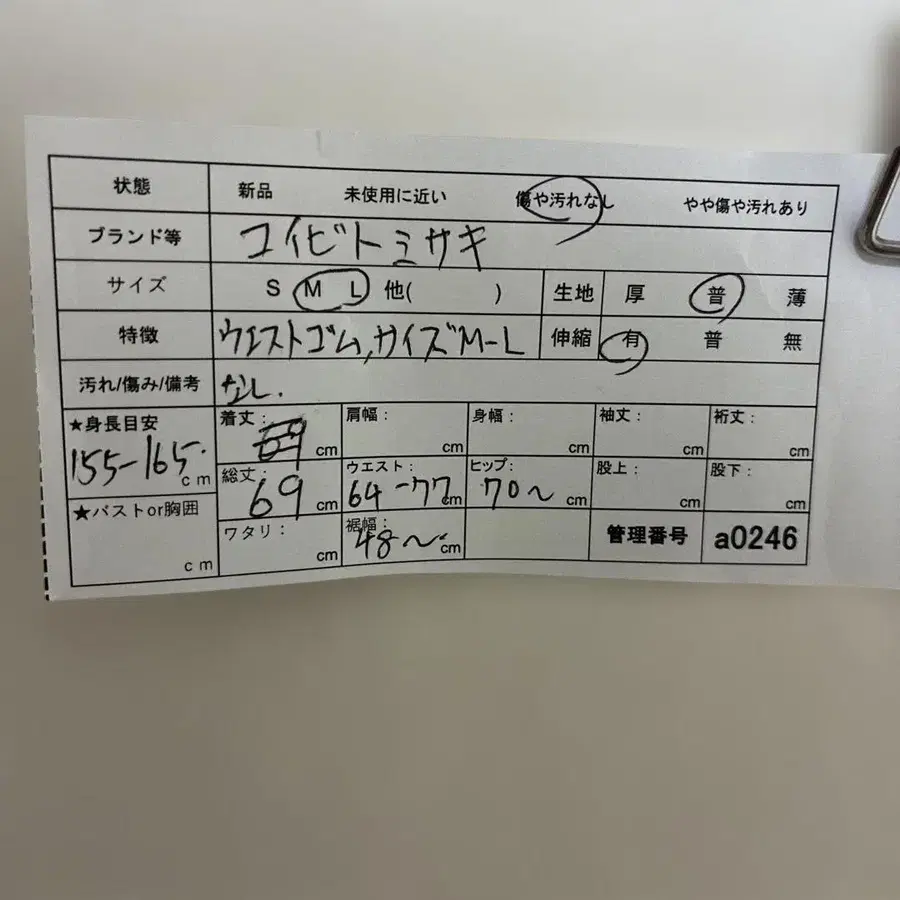 状態 新品 未使用に近い 傷や汚れなし やや傷や汚れあり
ブランド等 コイビトミサキ
サイズ S M L 他( ) 生地 厚 普 薄
特徴 ウエストゴム,サイズM-L 伸縮 有 普 無
汚れ/傷み/備考 なし.
★身長目安 着丈: cm 肩幅: cm 身幅: cm 袖丈: cm 裄丈: cm
155-165. cm 総丈: 69 cm ウエスト: 64-77 cm ヒップ: 70~ cm 股上: cm 股下: cm
★バストor胸囲 cm ワタリ: cm 裾幅: 48~ cm 管理番号 a0246